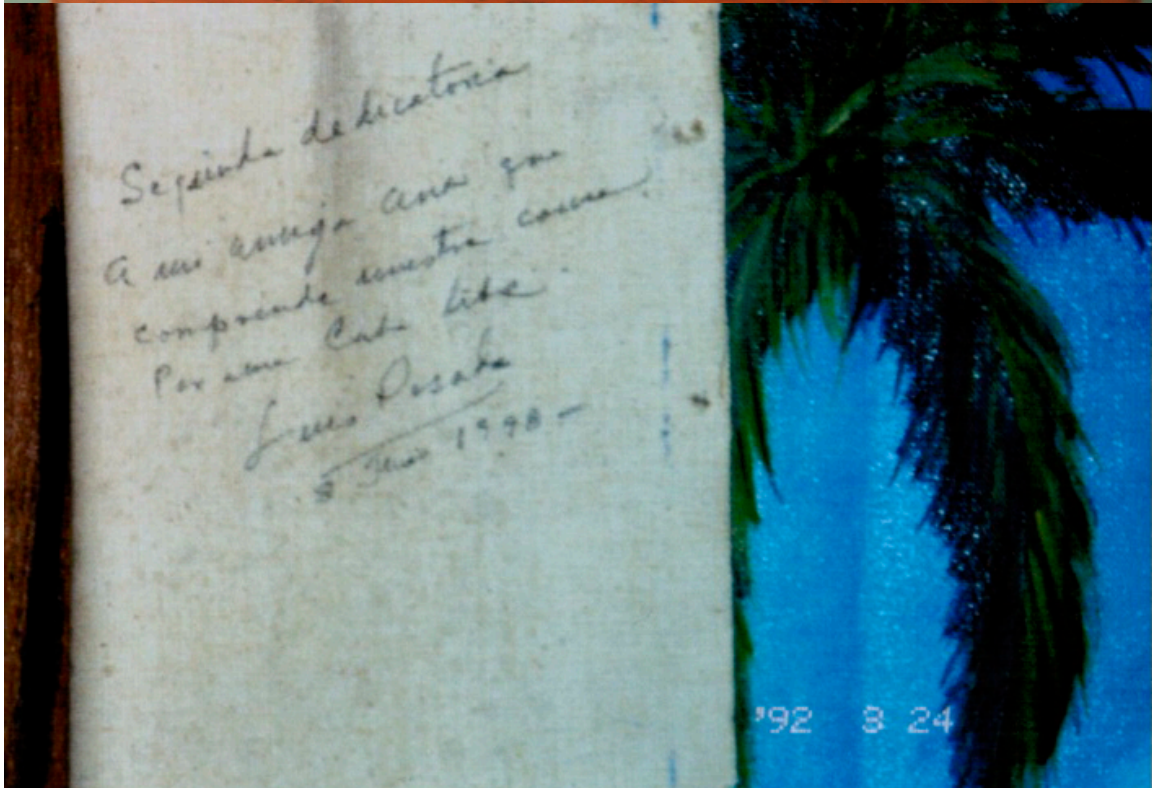 Segunda dedicatoria
A mi amiga Ana que
comprende nuestra causa.
Por una Cuba libre.
Luis Posada
8 1998 -
'92 8 24